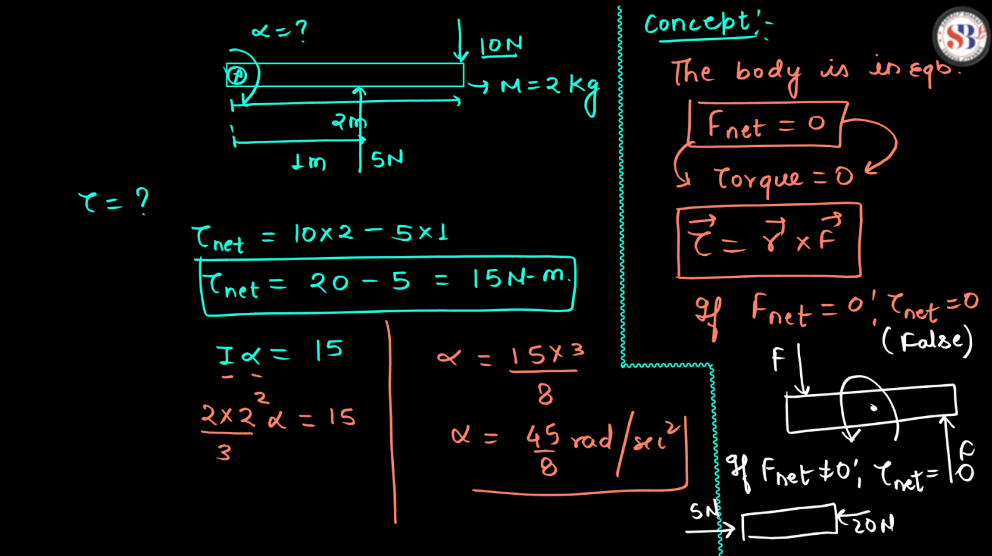 α = ?
10N
P
→ M = 2 kg
2m
1m
5N
τ = ?
τnet = 10×2 − 5×1
τnet = 20 − 5 = 15 N-m.
I α = 15
2×2² α = 15
3
α = 15×3
8
α = 45 rad/sec²
8
Concept:-
The body is in Eqb.
Fnet = 0
Torque = 0
τ⃗ = r⃗ × F⃗
If Fnet = 0; τnet = 0
(False)
F
F
If Fnet ≠ 0; τnet = 0
5N
20N
SB